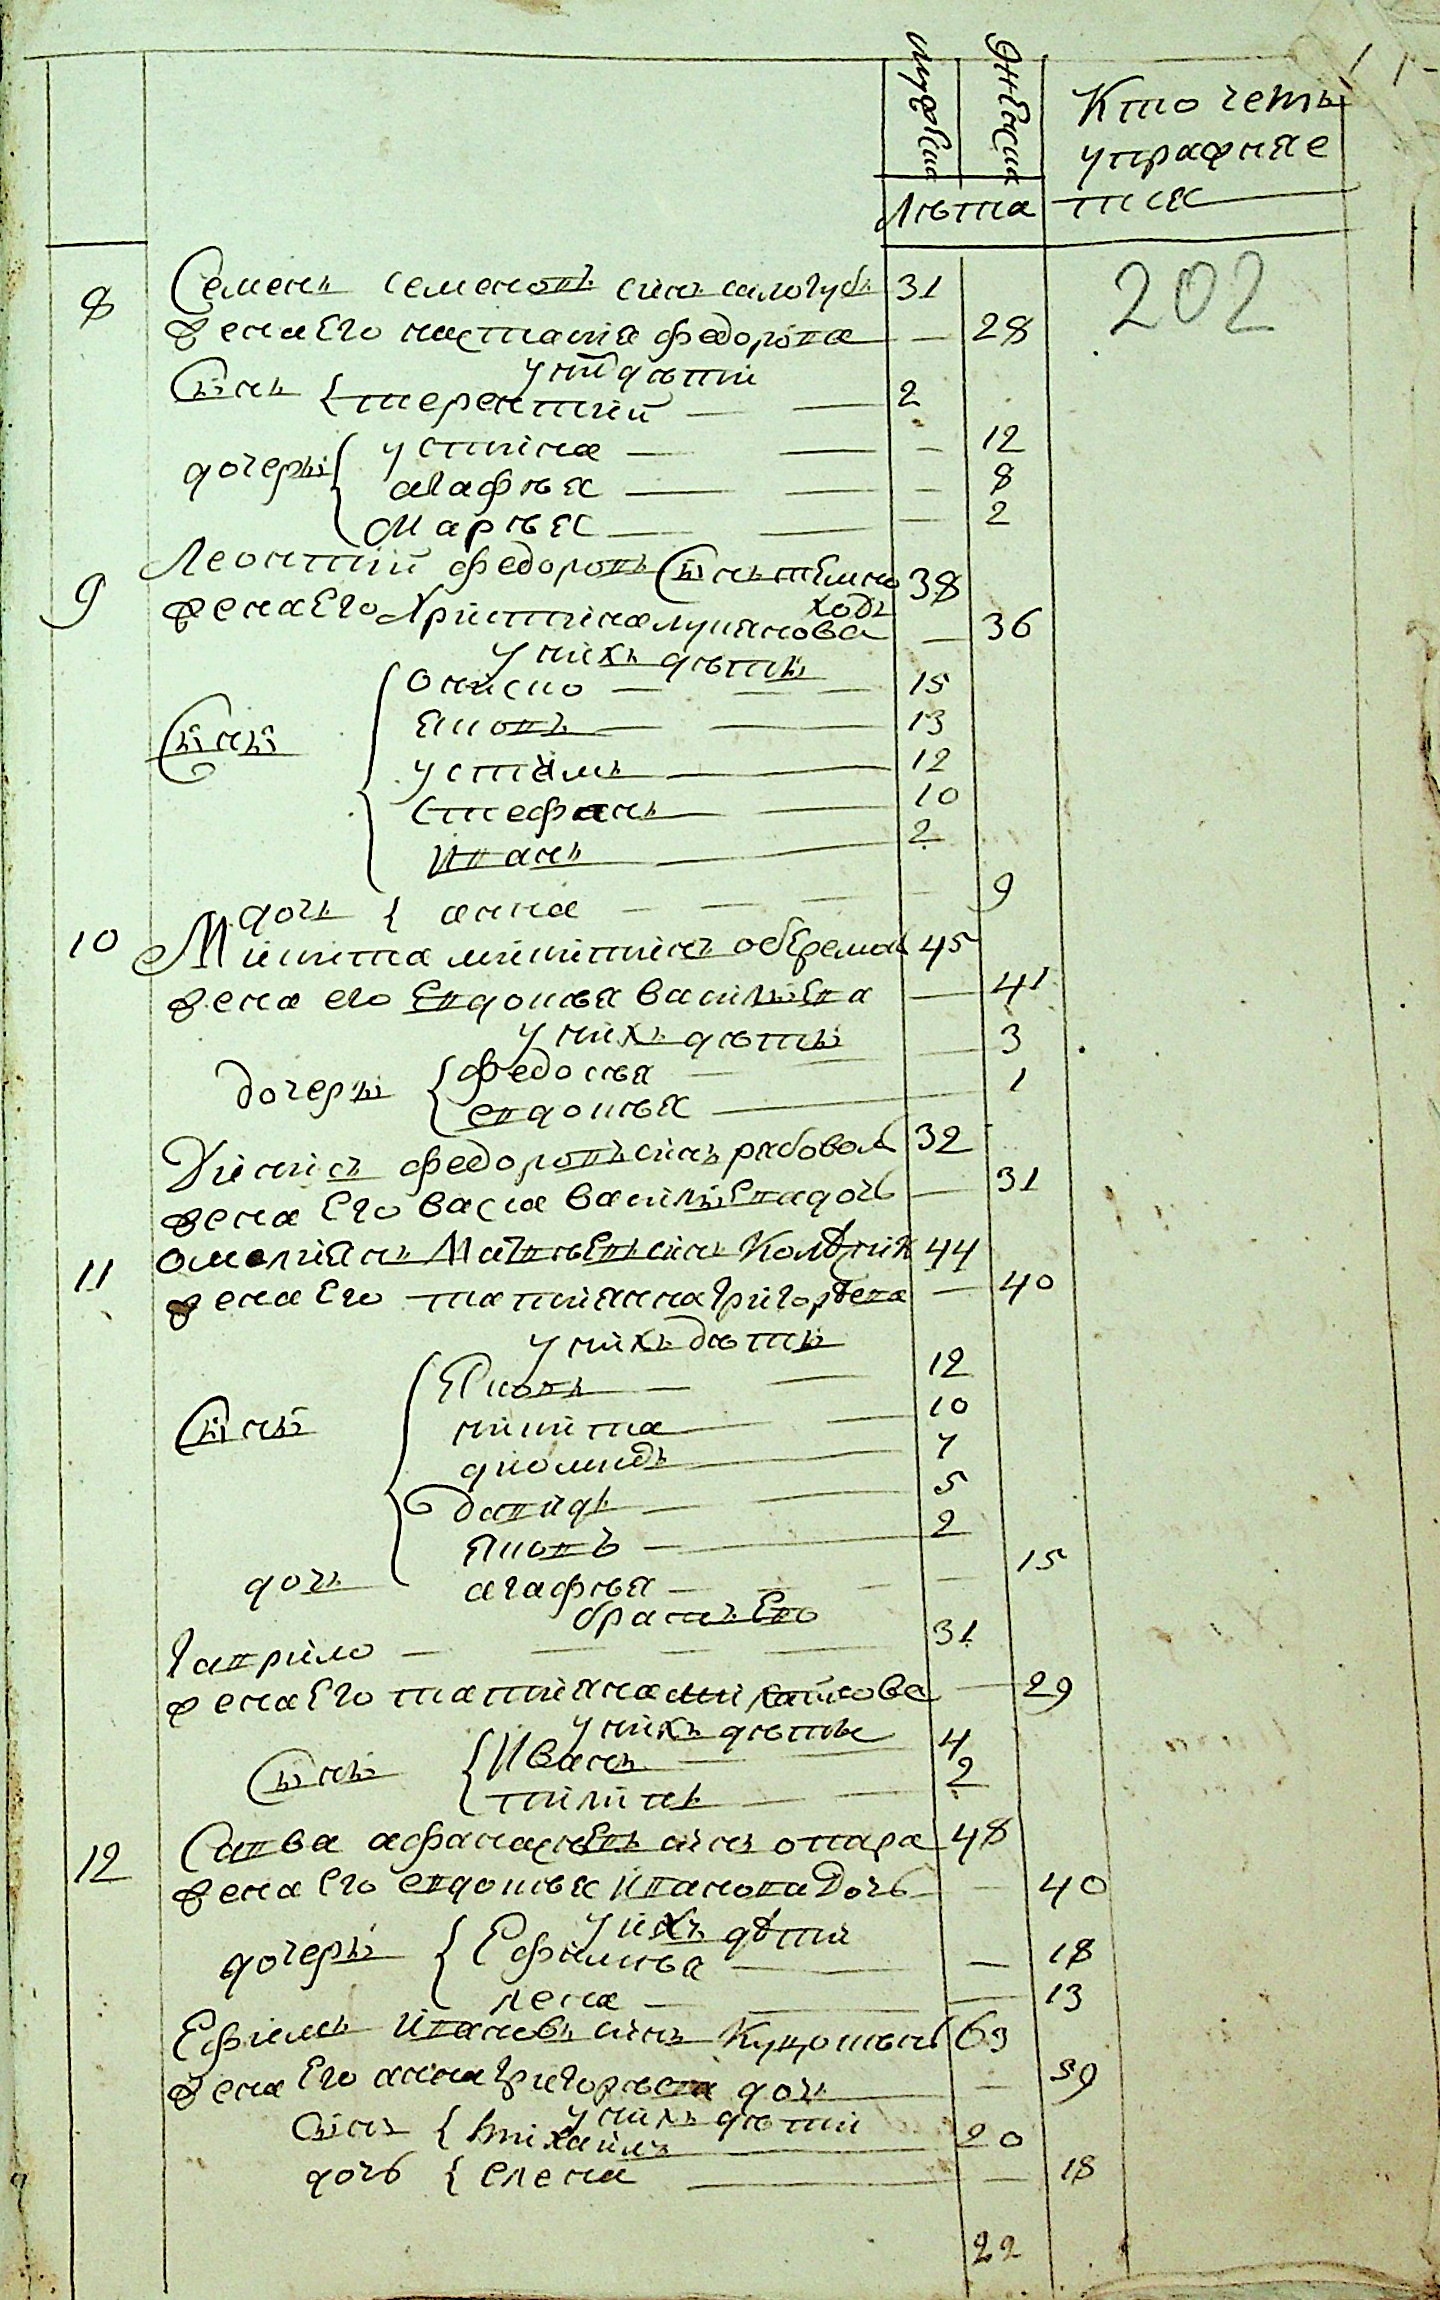 мужеска
женска
Кто чемъ
упражняе
лѣта
тся
202
8 Семенъ семеновъ синъ салогубъ 31
жена Его настасия федорова — 28
у нихъ дѣтій
Синъ { терентий — — 2
дочеры { устина — — — 12
агафия — — — 8
Мария — — — 2
9 Леонтий федоровъ Синъ темно 38
ходъ
жена Его Христина лукянова — 36
у нихъ дѣты
Сины { Ониско — — — 15
Яковъ — — 13
устимъ — 12
Стефанъ — 10
Иванъ — 2
дочъ { анна — — — — 9
10 Микита микитинъ обЕремок 45
жена его Евдокия василиЕва — 41
у нихъ дѣты
дочеры { федосия — — 3
евдокия — 1
Дienисъ федоровъ синъ рябовол 32
жена Его васса василиЕва дочь — 31
11 омелиянъ МатвѣЕвъ синъ Колѣсник 44
жена Его татиянна григорѣева — 40
у нихъ дѣты
Сины { Яковъ — — 12
никита — 10
диомидъ — 7
давидъ — — 5
Яковъ — 2
дочъ агафия — — — — 15
братъ Его
гаврило — — — — 31
жена Его татияна михайлова — 29
у нихъ дѣты
Сины { Иванъ — — 4
пилипъ — — 2
12 Савва афанасиЕвъ синъ опара 48
жена Его евдокия Иванова Дочь — 40
у нихъ дѣтий
дочеры { Ефимия — — 18
лена — — — 13
Ефимъ Ивановъ синъ 63
жена Его анна григориева дочъ — 39
у нихъ дѣтий
синъ { михаилъ — 20
дочь { елена — — 18
22